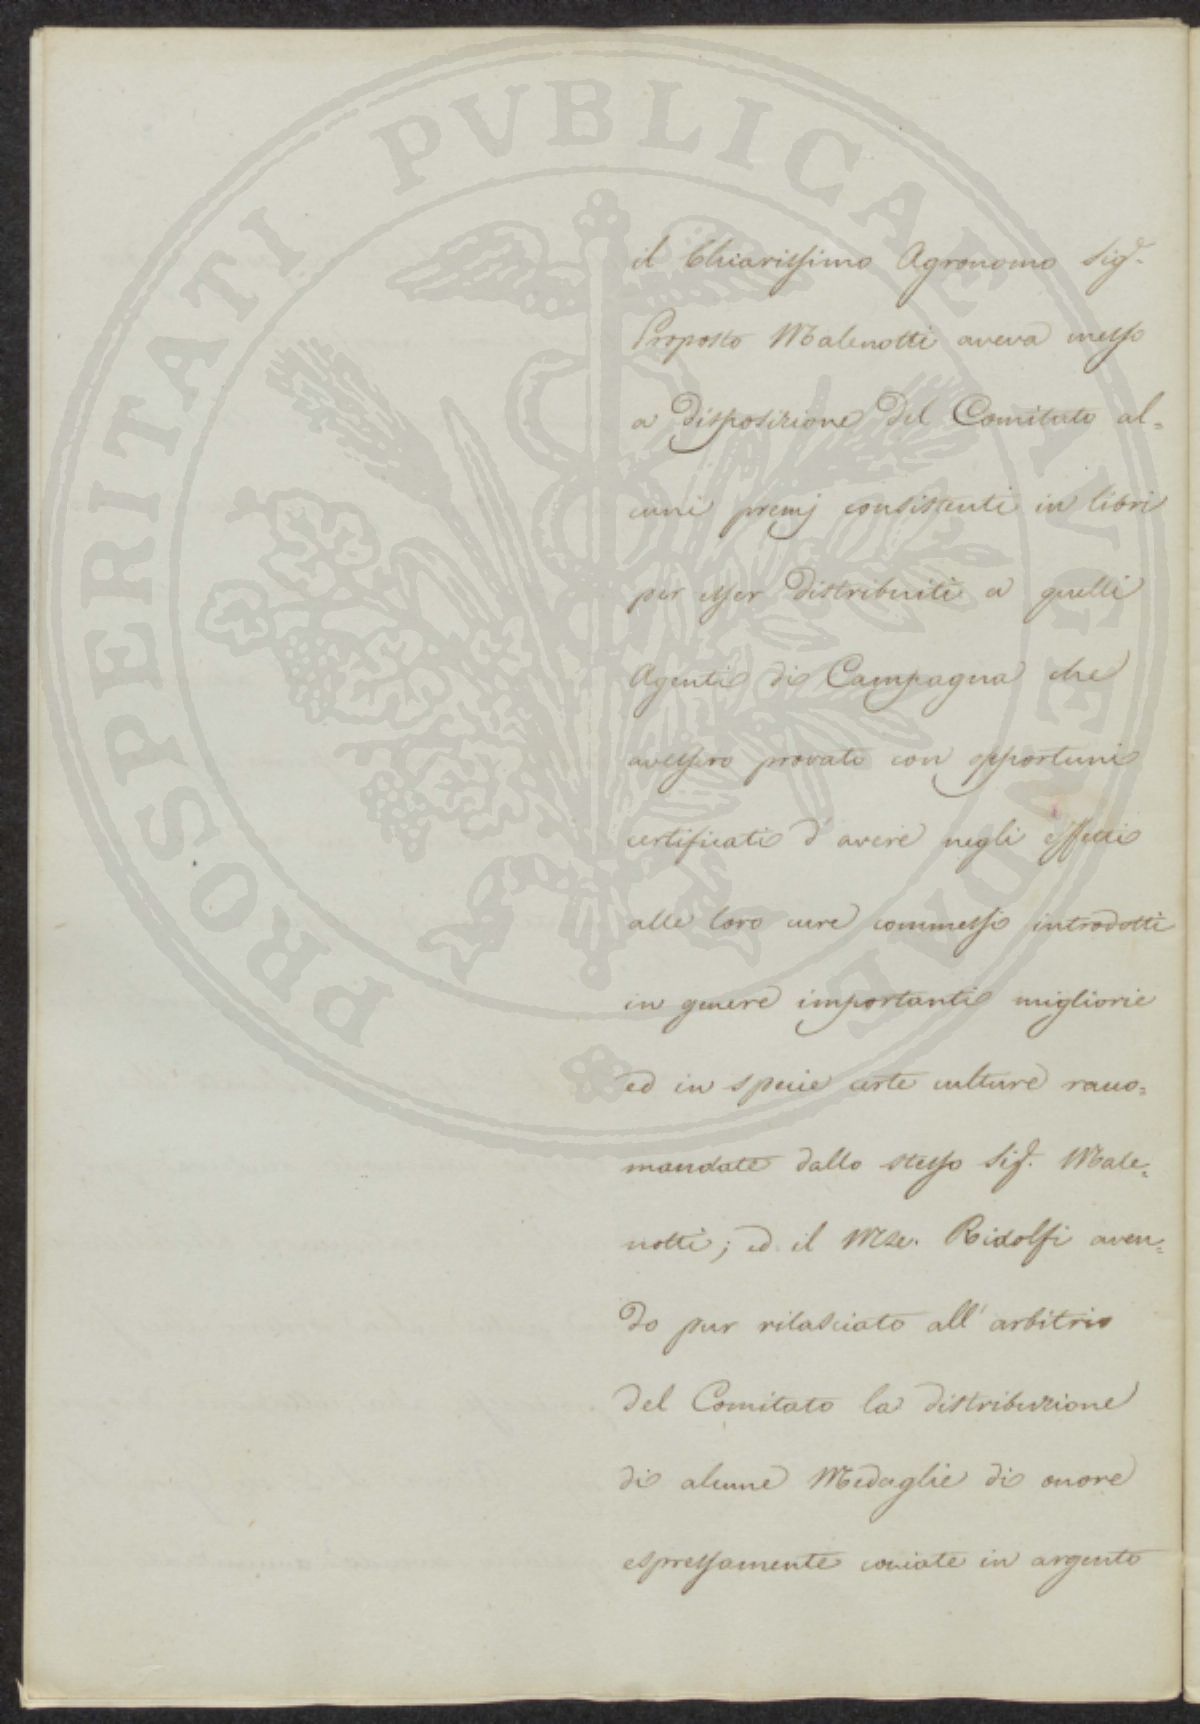 il Chiarissimo Agronomo Sig.r
Proposto Malenotti aveva messo
a disposizione del Comitato al=
cuni premj consistenti in libri
per esser distribuiti a quelli
Agenti di Campagna che
avessero provato con opportuni
certificati d'avere negli effetti
alle loro cure commessi introdotti
in genere importanti migliorie
ed in specie certe culture racco=
mandate dallo stesso Sig.r Male=
notti; ed il Mse. Ridolfi aven=
do pur rilasciato all'arbitrio
del Comitato la distribuzione
di alcune Medaglie di onore
espressamente coniate in argento
PROSPERITATI PVBLICAE AVGENDAE